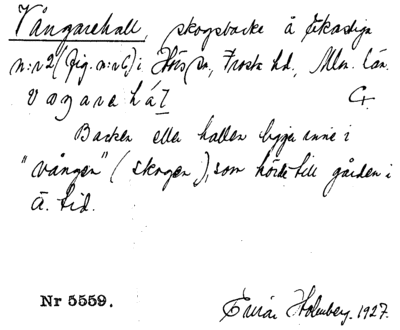 Vångarehall, skogsbacke å Ekastiga
n:r 2 (fig. n:r 6) i Hörs sn, Frosta hd, Mlm. län.
vagarehál G
Backen eller hallen ligger inne i
"vången" (skogen), som hörde till gården i
ä. tid.
Nr 5559. Einar Holmberg. 1927.